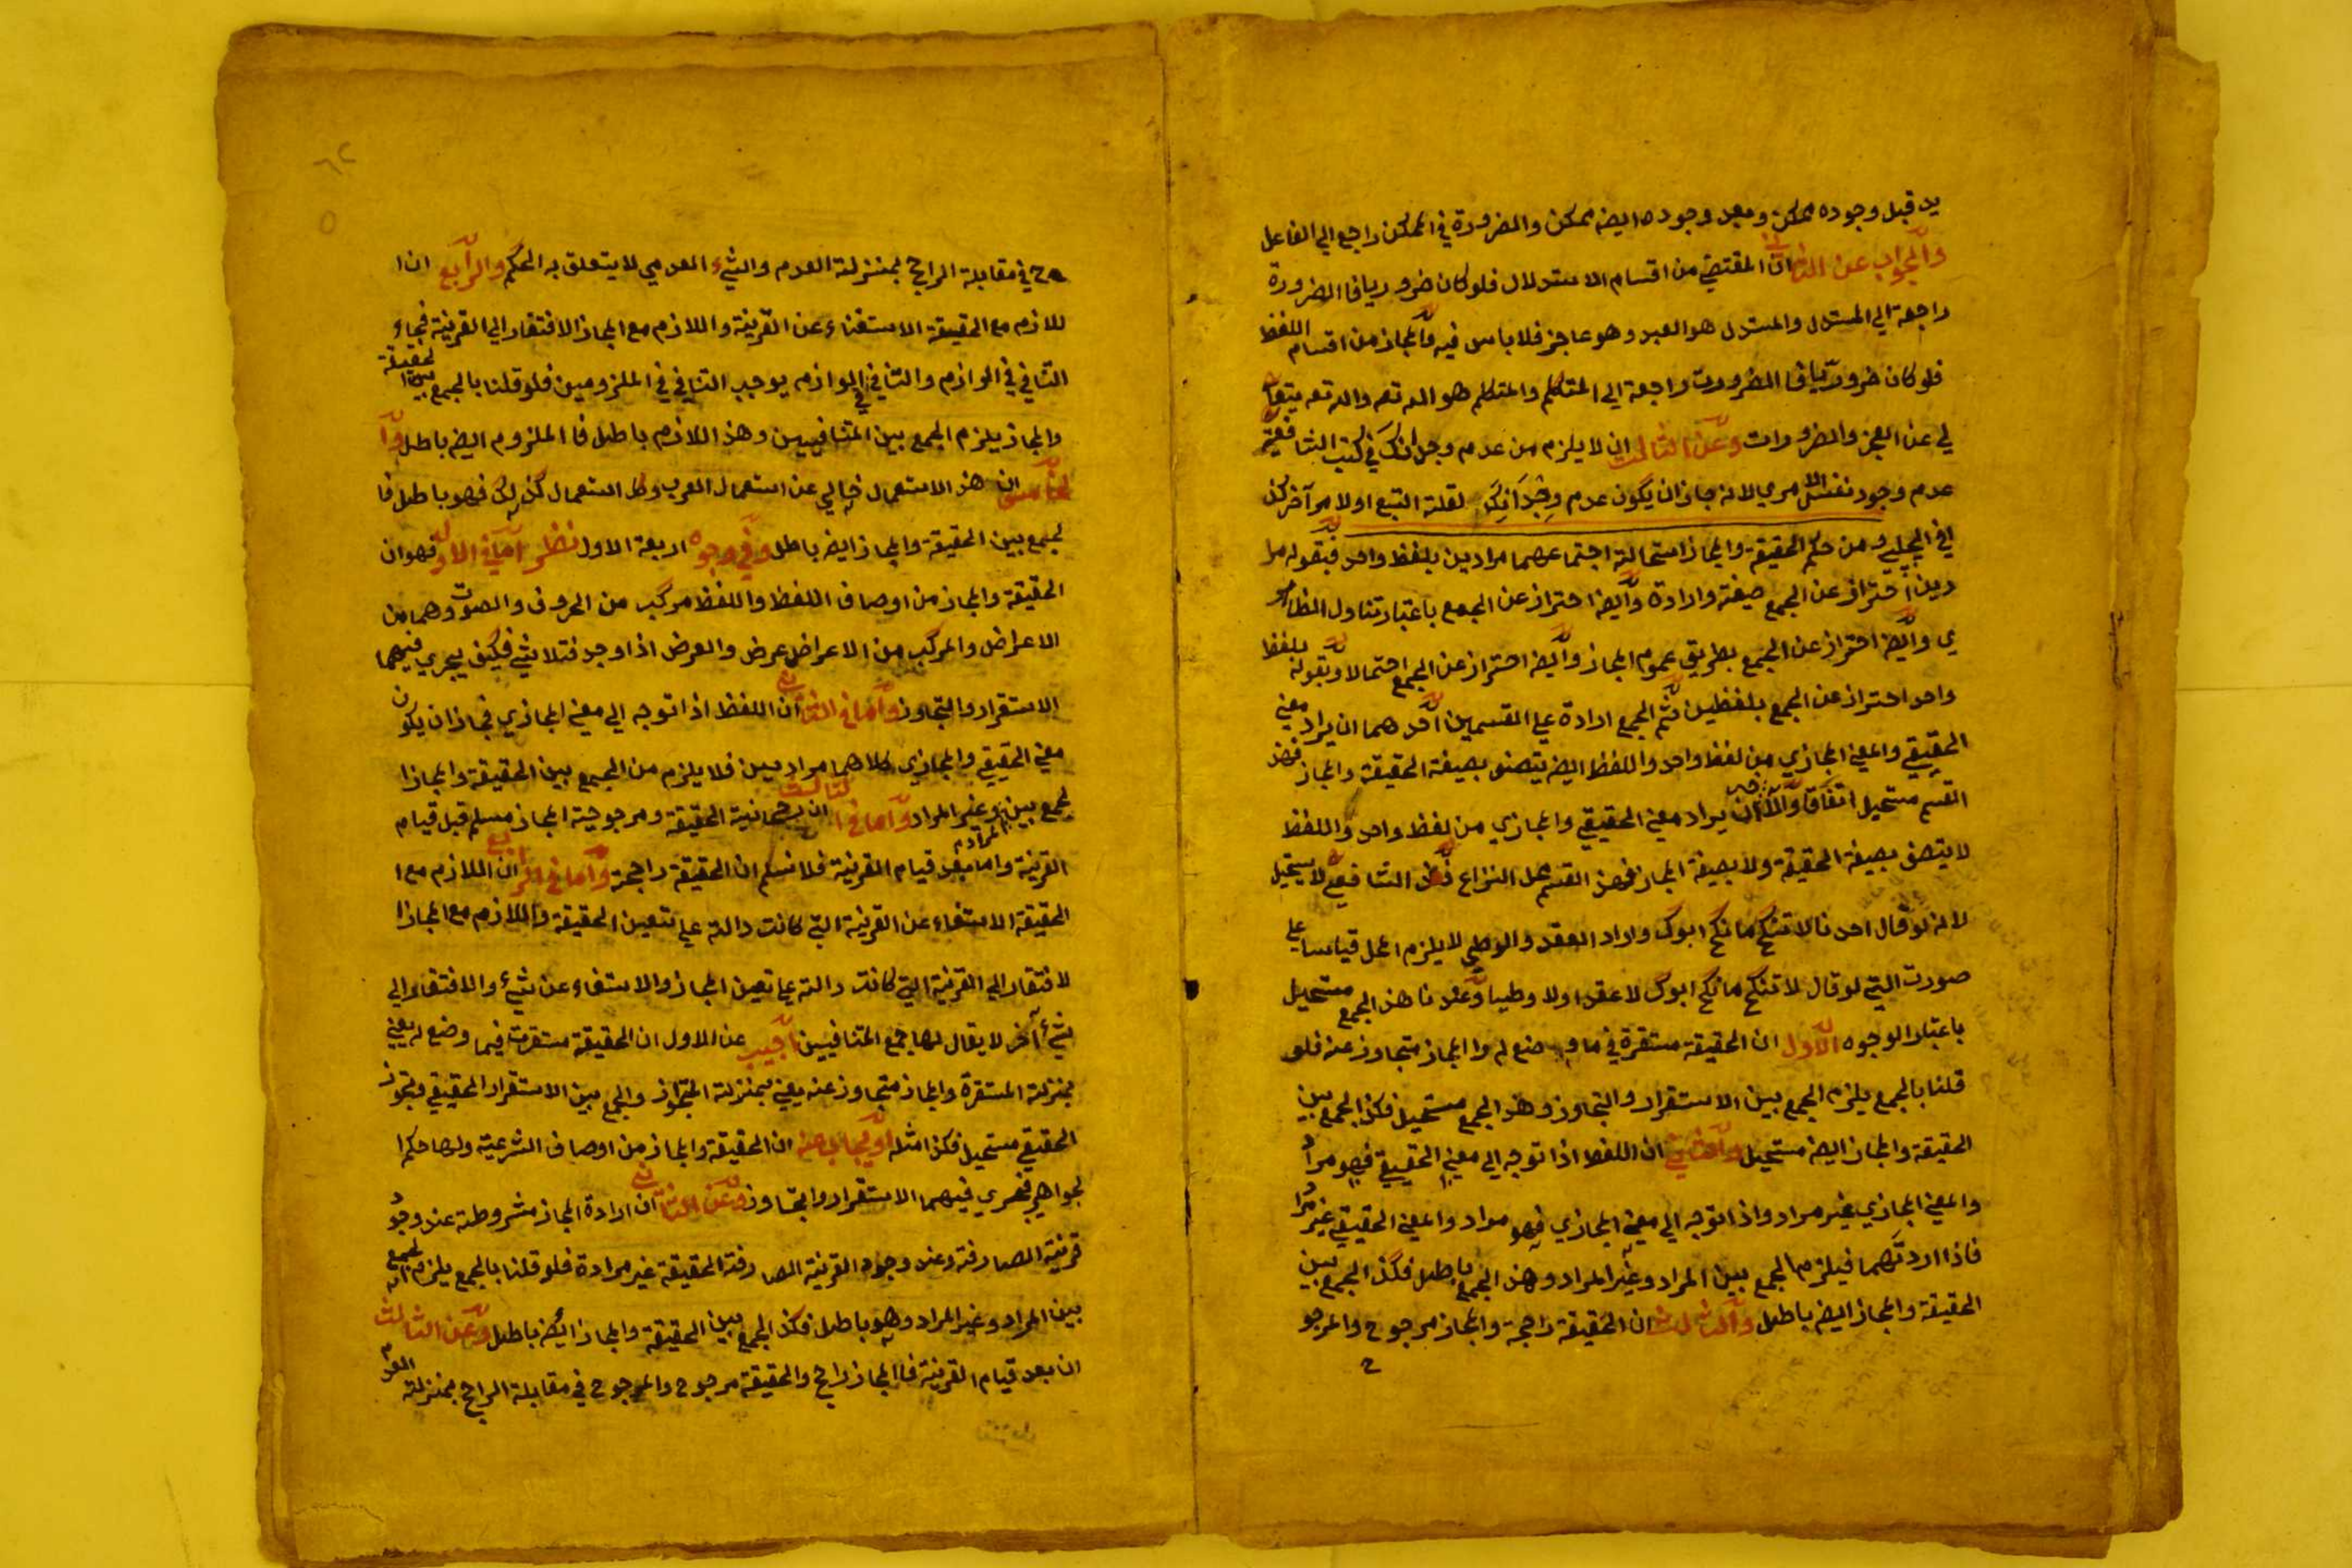 يد قبل وجوده ممكن وبعد وجوده ايضه ممكن والضرورة في الممكن راجع الي الفاعل
والجواب عن الثاني ان المقتضي من اقسام الاستدلال فلو كان ضروريا فا الضرورة
راجعة الي المستدل والمستدل هو العبد وهو عاجز فلا باس فيه والمجاز من اقسام اللفظ
فلو كان ضروريا فا الضرورت راجعة الي المتكلم والمتكلم هو الله تعه والله تعه يتعا
لي عن العجز والضرورات وعن الثالث ان لا يلزم من عدم وجدانك في كتب الشافعية
عدم وجود نفس الامري لانه جاز ان يكون عدم وجدانك لقلة التتبع او لامر آخر كذ
افي الچلپي ومن حكم الحقيقة والمجاز استحالة اجتماعهما مرادين بلفظ واحد فبقوله مرا
دين احتراز عن الجمع صيغة وارادة وايضه احتراز عن الجمع باعتبار تناول الظاهر
ي وايضه احتراز عن الجمع بطريق عموم المجاز وايضه احتراز عن الجمع احتمالا وبقوله بلفظ
واحد احتراز عن الجمع بلفظين ثم الجمع ارادة علي القسمين احدهما ان يراد معني
الحقيقي والمعني المجازي من لفظ واحد واللفظ ايضه يتصف بصيغة الحقيقة والمجاز فهذ
القسم مستحيل اتفاقا والآخر ان يراد معني الحقيقي والمجازي من لفظ واحد واللفظ
لا يتصف بصيغة الحقيقة ولا بصيغة المجاز فهذ القسم محل النزاع فعند الشافعي لا يستحيل
لانه لو قال احدنا لا تنكح ما نكح ابوك واراد العقد والوطي لا يلزم المحل قياسا علي
صورت التي لو قال لا تنكح ما نكح ابوك لا عقدا ولا وطيا وعندنا هذ الجمع مستحيل
باعتبار الوجوه الاول ان الحقيقة مستقرة في ما وضع له والمجاز متجاوز عنه فلو
قلنا بالجمع يلزم الجمع بين الاستقرار والتجاوز وهذ الجمع مستحيل فكذ الجمع بين
الحقيقة والمجاز ايضه مستحيل والثاني ان اللفظ اذا توجه الي معني الحقيقي فهو مراد
والمعني المجازي غير مراد واذا توجه الي معني المجازي فهو مراد والمعني الحقيقي غير مراد
فاذا اردتهما فيلزم الجمع بين المراد وغير المراد وهذ الجمع باطل فكذ الجمع بين
الحقيقة والمجاز ايضه باطل والثالث ان الحقيقة راجحة والمجاز مرجوح والمرجو
ح
ح في مقابلة الراجح بمنزلة العدم والشيء العدمي لا يتعلق به الحكم والرابع ان ا
للازم مع الحقيقة الاستغناء عن القرينة واللازم مع المجاز الافتقار الي القرينة فجاء
التنافي في الوازم والتنافي في الوازم يوجب التنافي في الملزومين فلو قلنا بالجمع بين الحقيقة
والمجاز يلزم الجمع بين المتنافيين وهذ اللازم باطل فا الملزوم ايضه باطل وا
لخامس ان هذ الاستعمال خالي عن استعمال العرب وكل استعمال كذلك فهو باطل فا
لجمع بين الحقيقة والمجاز ايضه باطل وفي وجوه اربعة الاول نظر اما في الاول فهو ان
الحقيقة والمجاز من اوصاف اللفظ واللفظ مركب من الحروف والصوت وهما من
الاعراض والمركب من الاعراض عرض والعرض اذا وجد فتلاشي فكيف يجري فيهما
الاستقرار والتجاوز واما في الثاني ان اللفظ اذا توجه الي معني المجازي فجاز ان يكون
معني الحقيقي والمجازي كلاهما مرادين فلا يلزم من الجمع بين الحقيقة والمجاز ا
لجمع بين المراد وغير المراد واما في الثالث ان رجحانية الحقيقة ومرجوحية المجاز مسلم قبل قيام
القرينة واما بعد قيام القرينة فلا نسلم ان الحقيقة راجحة واما في الرابع ان اللازم مع ا
لحقيقة الاستغناء عن القرينة التي كانت دالة علي تعين الحقيقة واللازم مع المجاز ا
لافتقار الي القرينة التي كانت دالة علي تعين المجاز والاستغناء عن شيء والافتقار الي
شيء آخر لا يقال لها جمع المتنافيين اجيب عن الاول ان الحقيقة مستقرت فيما وضع له يعني
بمنزلة المستقرة والمجاز متجاوز عنه يعني بمنزلة المتجاوز والجمع بين الاستقرار الحقيقي وتجوز
الحقيقي مستحيل فكذا مثله او يجاب عنه ان الحقيقة والمجاز من اوصاف الشرعية ولها حكم ا
لجواهر فجري فيهما الاستقرار والتجاوز وعن الثاني ان ارادة المجاز مشروطة عند وجود
قرينة الصارفة وعند وجود القرينة الصارفة الحقيقة غير مرادة فلو قلنا بالجمع يلزم الجمع
بين المراد وغير المراد وهو باطل فكذ الجمع بين الحقيقة والمجاز ايضه باطل وعن الثالث
ان بعد قيام القرينة فا المجاز راجح والحقيقة مرجوح والمرجوح في مقابلة الراجح بمنزلة العدم